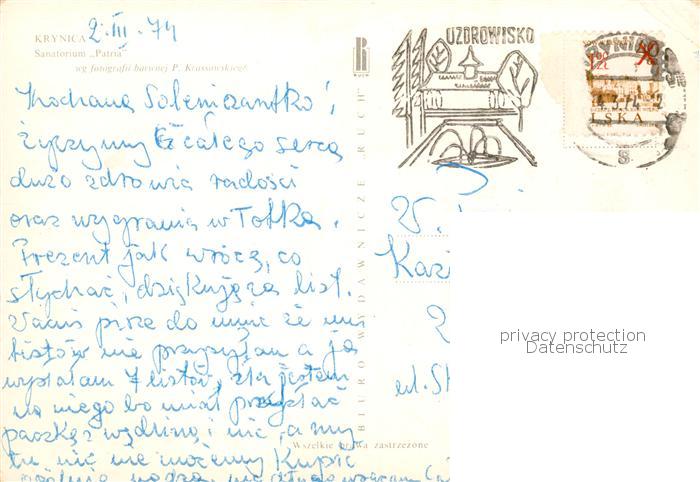 2.III.74
KRYNICA
Sanatorium „Patria"
wg fotografii barwnej P. Krassowskiego
Kochana Solenizantko!
Życzymy z całego serca
dużo zdrowia radości
oraz wygrania w Totka.
Prezent jak wrócę, co
słychać, dziękuję za list.
pisze do mnie że mu
listów nie przysyłam a ja
wysłałam 7 listów, zła jestem
na niego bo miał przysłać
paczkę z wędliną i nic, a my
tu nic nie możemy kupić
BIURO WYDAWNICZE „RUCH"
RUCH
UZDROWISKO
LSKA
S
Kazi
ul. S
Wszelkie prawa zastrzeżone
privacy protection
Datenschutz